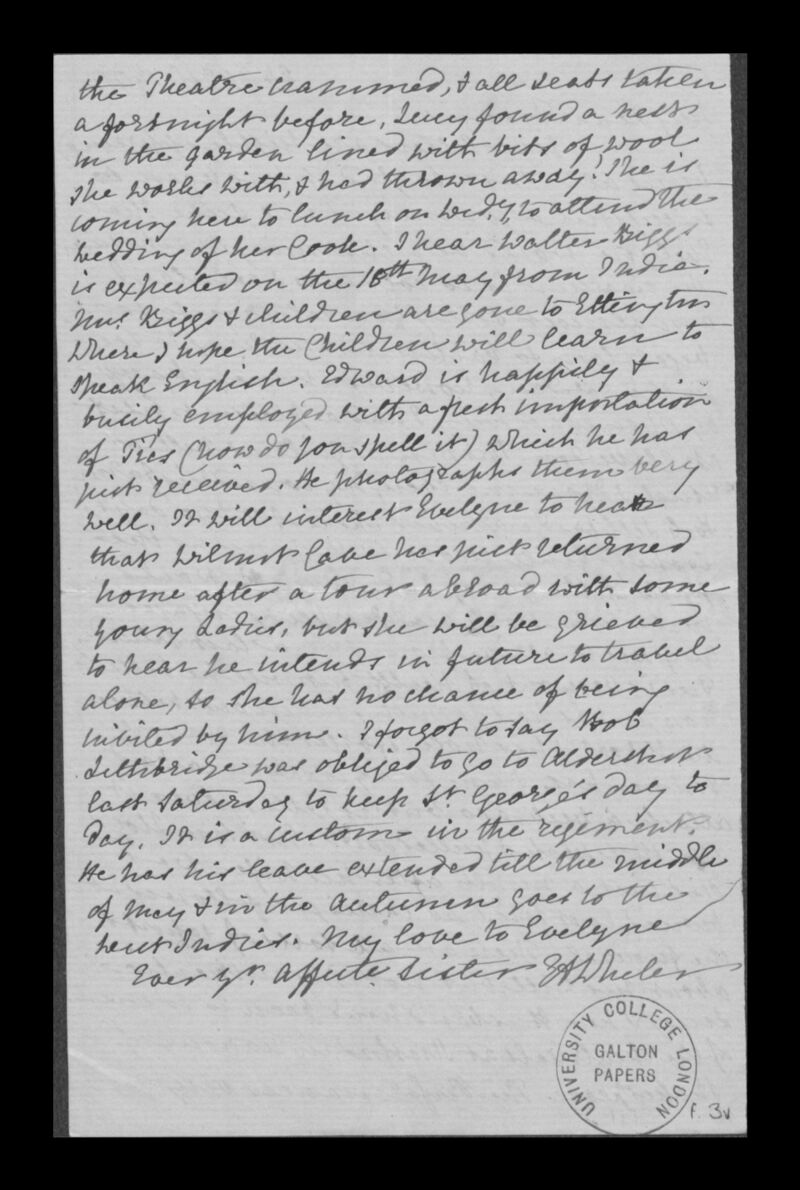 the Theatre crammed, & all seats taken
a fortnight before. Lucy found a nest
in the garden lined with bits of wool
she works with, & had thrown away! She is
coming here to lunch on Wedy, to attend the
wedding of her Cook. I hear Walter Biggs
is expected on the 18th May from India.
Mrs. Biggs & children are gone to Ettington
where I hope the Children will learn to
speak English. Edward is happily &
busily employed with a fresh importation
of (how do you spell it) which he has
just received. He photographs them very
well. It will interest Evelyne to hear
that Wilmot Cave has just returned
home after a tour abroad with some
young Ladies, but she will be grieved
to hear he intends in future to travel
alone, so she has no chance of being
invited by him. I forgot to say Bob
Lethbridge was obliged to go to Aldershot
last Saturday to keep St. George's day to
day. It is a custom in the regiment.
He has his leave extended till the middle
of May & in the Autumn goes to the
West Indies. My love to Evelyne
Ever yr. affecte. Sister EA Wheler
UNIVERSITY COLLEGE LONDON
GALTON
PAPERS
f. 3v